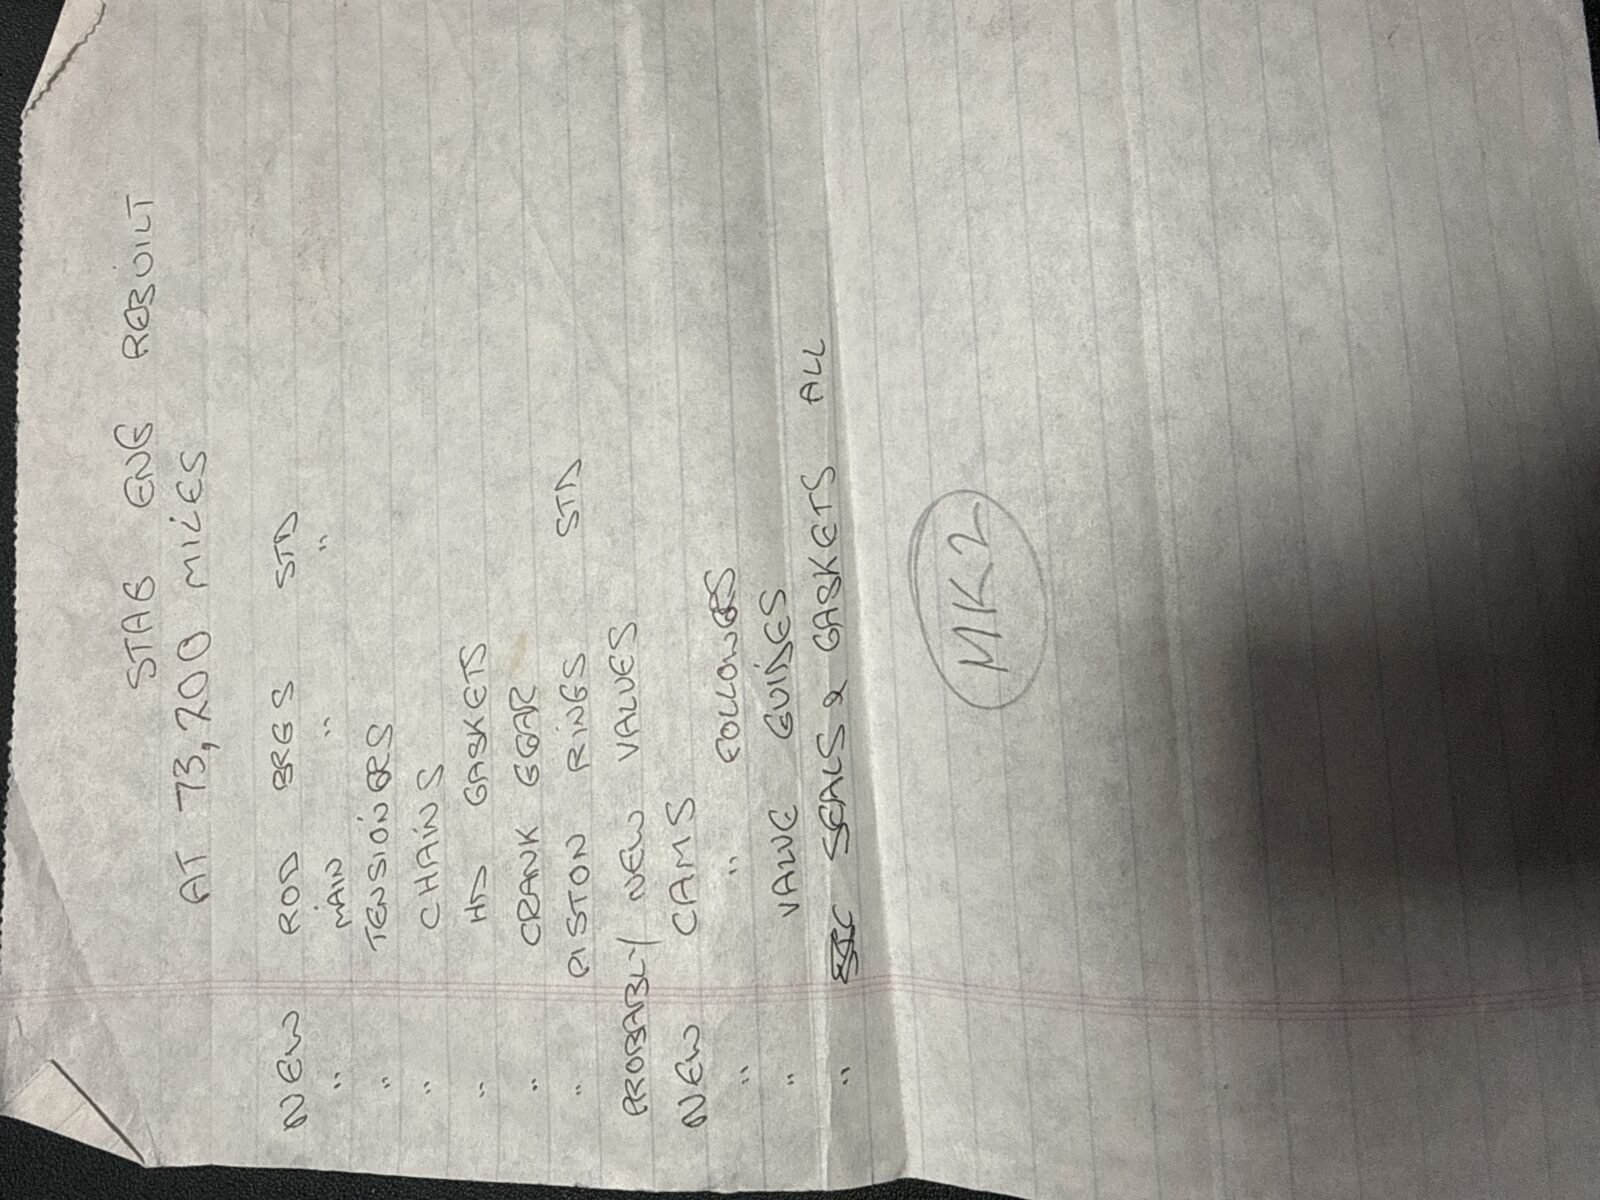 STAG ENG REBUILT
AT 73,200 MILES
NEW ROD BRGS STD
" MAIN " "
" TENSIONERS
" CHAINS
" HD GASKETS
" CRANK GEAR
" PISTON RINGS STD
PROBABLY NEW VALVES
NEW CAMS
" " FOLLOWERS
" VALVE GUIDES
" SEALS & GASKETS ALL
MK2